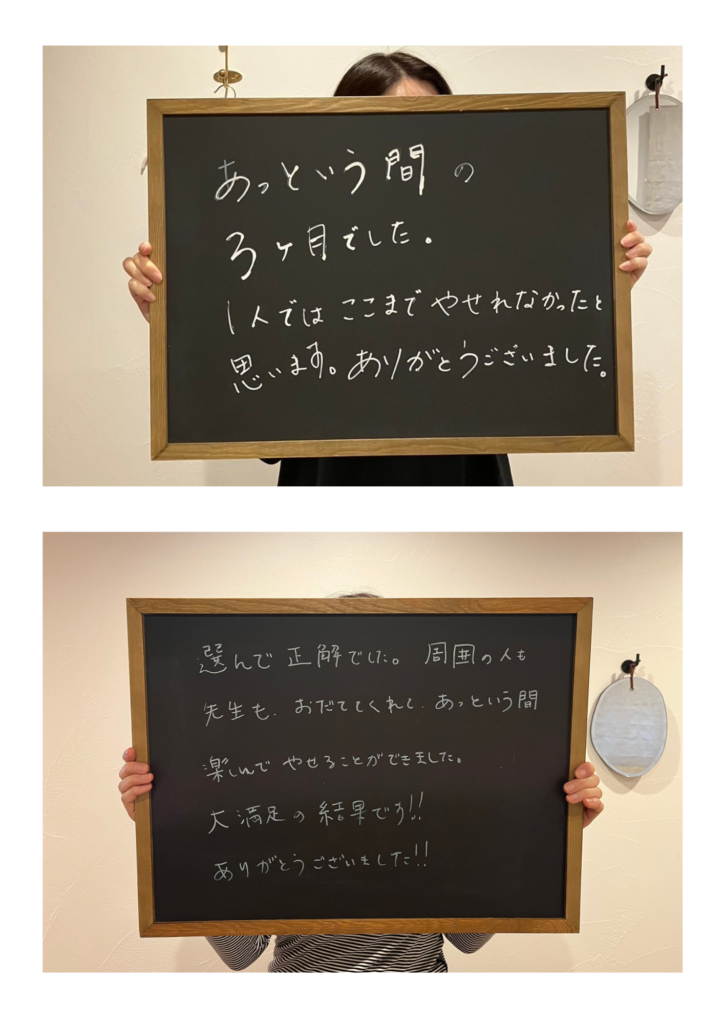 あっという間の
3ヶ月でした。
1人ではここまでやせれなかったと
思います。ありがとうございました。
選んで正解でした。周囲の人も
先生も、おだててくれて、あっという間
楽しんでやせることができました。
大満足の結果です!!
ありがとうございました!!